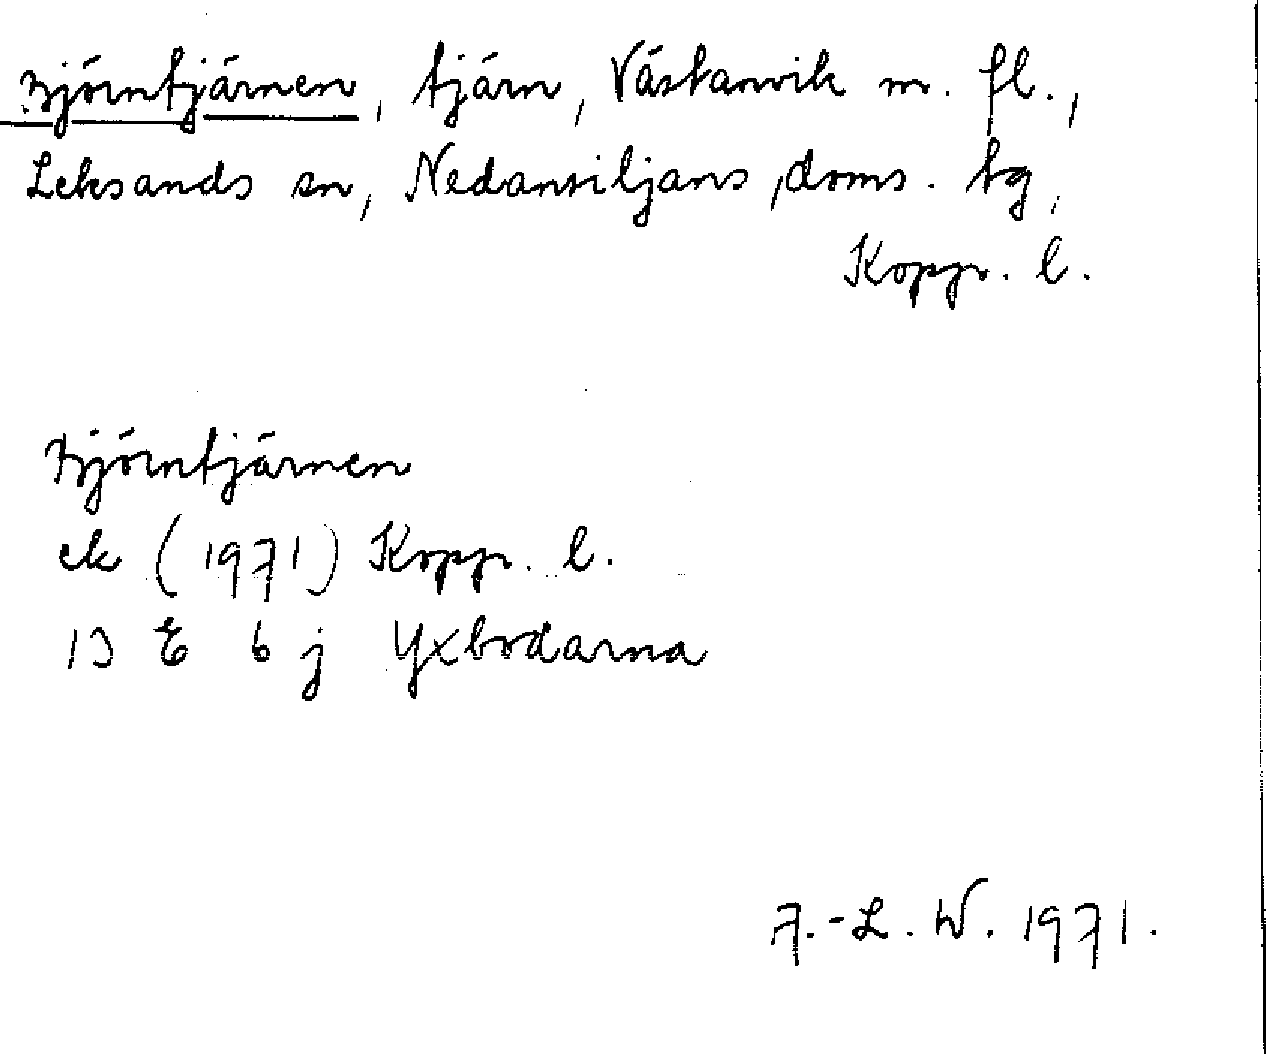 Björntjärnen, tjärn, Västanvik m. fl.,
Leksands sn, Nedansiljans doms. tg,
Kopp. l.
Björntjärnen
ek (1971) Kopp. l.
13 E 6 j Yxbodarna
A.-L. W. 1971.